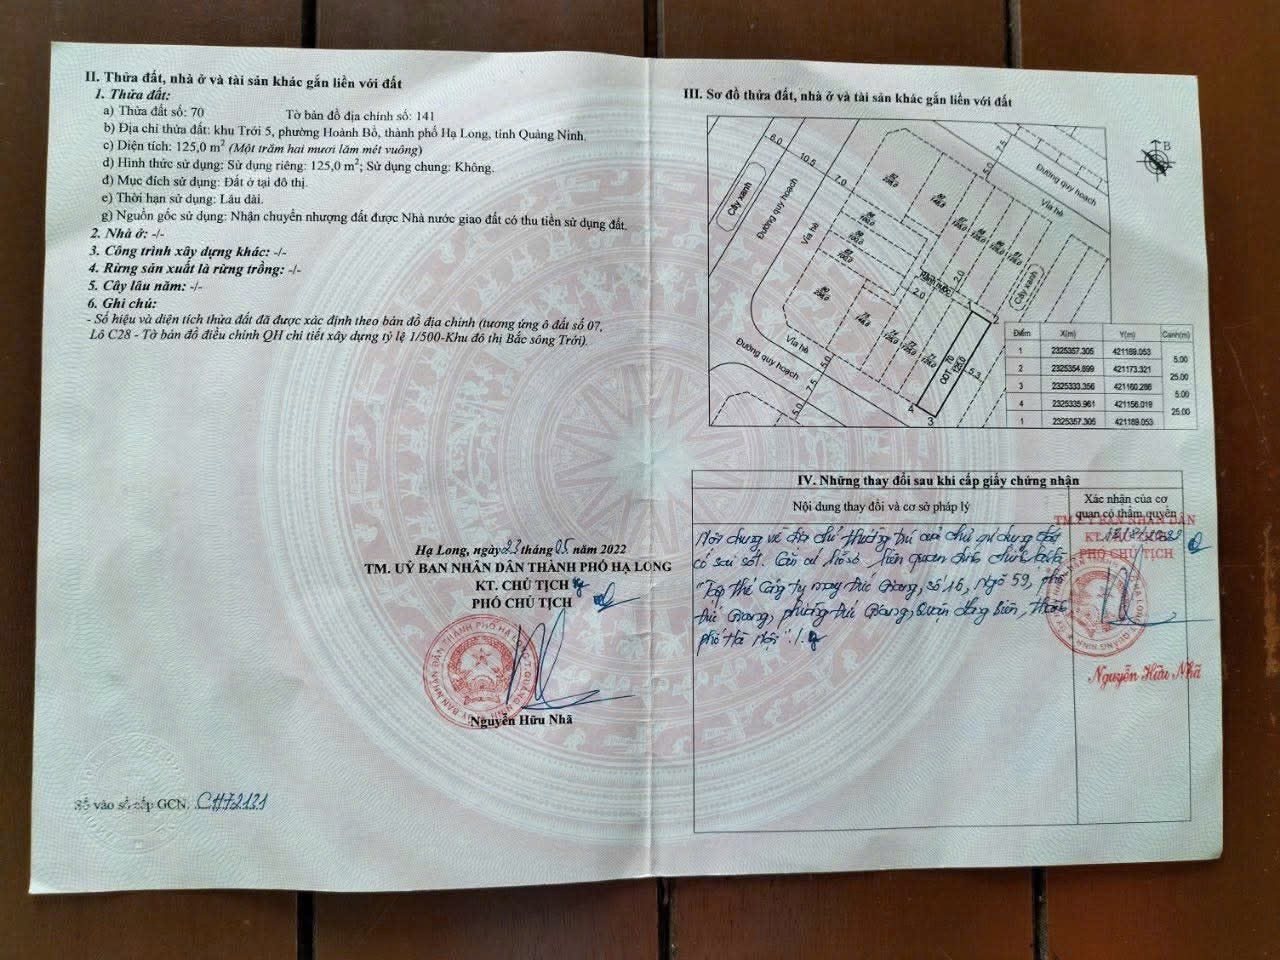 II. Thửa đất, nhà ở và tài sản khác gắn liền với đất
1. Thửa đất:
a) Thửa đất số: 70 Tờ bản đồ địa chính số: 141
b) Địa chỉ thửa đất: khu Trới 5, phường Hoành Bồ, thành phố Hạ Long, tỉnh Quảng Ninh.
c) Diện tích: 125,0 m² (Một trăm hai mươi lăm mét vuông)
d) Hình thức sử dụng: Sử dụng riêng: 125,0 m²; Sử dụng chung: Không.
đ) Mục đích sử dụng: Đất ở tại đô thị.
e) Thời hạn sử dụng: Lâu dài.
g) Nguồn gốc sử dụng: Nhận chuyển nhượng đất được Nhà nước giao đất có thu tiền sử dụng đất.
2. Nhà ở: -/-
3. Công trình xây dựng khác: -/-
4. Rừng sản xuất là rừng trồng: -/-
5. Cây lâu năm: -/-
6. Ghi chú:
- Số hiệu và diện tích thửa đất đã được xác định theo bản đồ địa chính (tương ứng ô đất số 07,
Lô C28 - Tờ bản đồ điều chỉnh QH chi tiết xây dựng tỷ lệ 1/500-Khu đô thị Bắc sông Trới).
Hạ Long, ngày 23 tháng 05 năm 2022
TM. UỶ BAN NHÂN DÂN THÀNH PHỐ HẠ LONG
KT. CHỦ TỊCH
PHÓ CHỦ TỊCH
Nguyễn Hữu Nhã
Số vào sổ cấp GCN. CH72131
III. Sơ đồ thửa đất, nhà ở và tài sản khác gắn liền với đất
B
6.0
10.5
7.0
5.0
7.5
Cây xanh
Đường quy hoạch
Vỉa hè
Đường quy hoạch
Vỉa hè
Cây xanh
2.0
2.0
Vỉa hè
5.0
7.5
5.0
Đường quy hoạch
ODT 70
125,0
5.3
1
4
3
Điểm X(m) Y(m) Cạnh(m)
1 2325357.305 421169.053
5.00
2 2325354.699 421173.321
25.00
3 2325333.356 421160.286
5.00
4 2325335.961 421156.019
25.00
1 2325357.305 421169.053
IV. Những thay đổi sau khi cấp giấy chứng nhận
Nội dung thay đổi và cơ sở pháp lý
Xác nhận của cơ
quan có thẩm quyền
Nội dung về địa chỉ thường trú của chủ sử dụng đất
có sai sót. Căn cứ hồ sơ liên quan đính chính bằng
"Tập thể Công ty may Đức Giang, số 16, Ngõ 59, phố
Đức Giang, phường Đức Giang, Quận Long Biên, Thành
phố Hà Nội"./.
TM. ỦY BAN NHÂN DÂN
KT. CHỦ TỊCH
PHÓ CHỦ TỊCH
Nguyễn Hữu Nhã